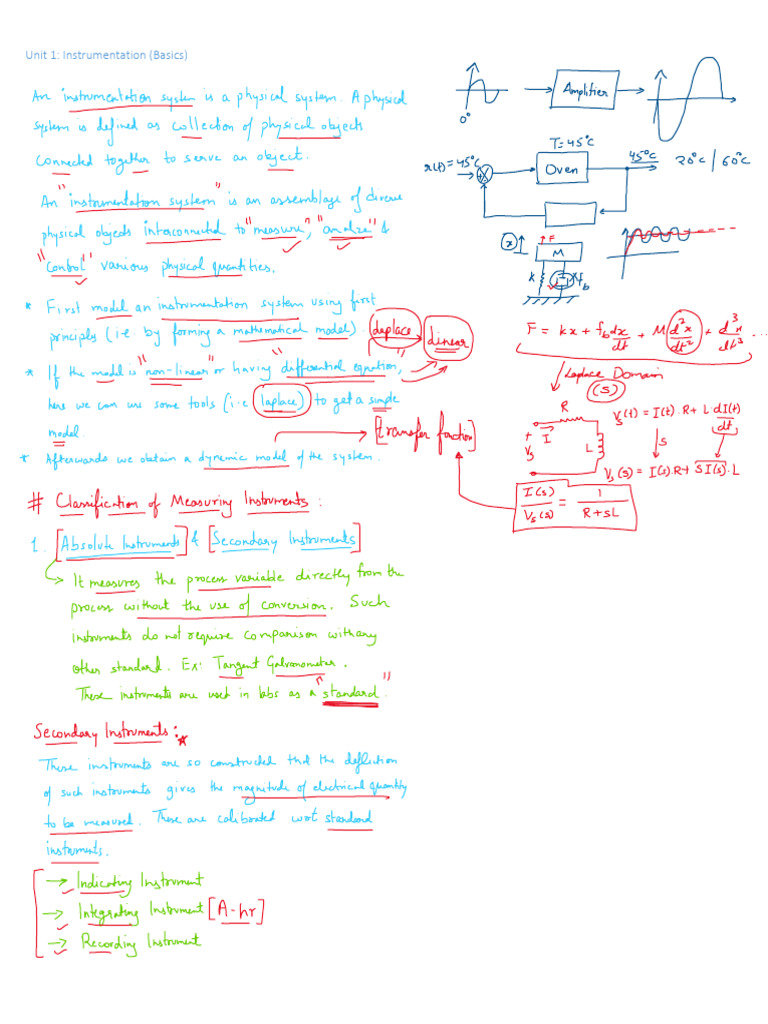 Unit 1: Instrumentation (Basics)
An instrumentation system is a physical system. A physical
system is defined as collection of physical objects
connected together to serve an object.
An "instrumentation system" is an assemblage of diverse
physical objects interconnected to "measure", "analze" &
"control" various physical quantities.
* First model an instrumentation system using first
principles (i.e by forming a mathematical model)
* If the model is "non-linear" or having "differential equation",
here we can use some tools (i.e laplace) to get a simple
model.
* Afterwards we obtain a dynamic model of the system.
laplace
linear
[transfer function]
0°
Amplifier
r(t)=45°C
T=45°C
Oven
45°C
20°C / 60°C
x
F
M
k
f_b
F = kx + f_b dx/dt + M d²x/dt² + d³x/dt³ ...
Laplace Domain
(s)
R
+
I
V_s
L
-
V_s(t) = I(t).R + L.dI(t)/dt
s
V_s(s) = I(s).R + SI(s).L
I(s)/V_s(s) = 1/(R+sL)
# Classification of Measuring Instruments :
1. [Absolute Instruments] & [Secondary Instruments]
→ It measures the process variable directly from the
process without the use of conversion. Such
instruments do not require comparison with any
other standard. Ex: Tangent Galvanometer.
These instruments are used in labs as a "standard".
Secondary Instruments:*
These instruments are so constructed that the deflection
of such instruments gives the magnitude of electrical quantity
to be measured. These are calibrated wrt standard
instruments.
→ Indicating Instrument
→ Integrating Instrument [A-hr]
→ Recording Instrument